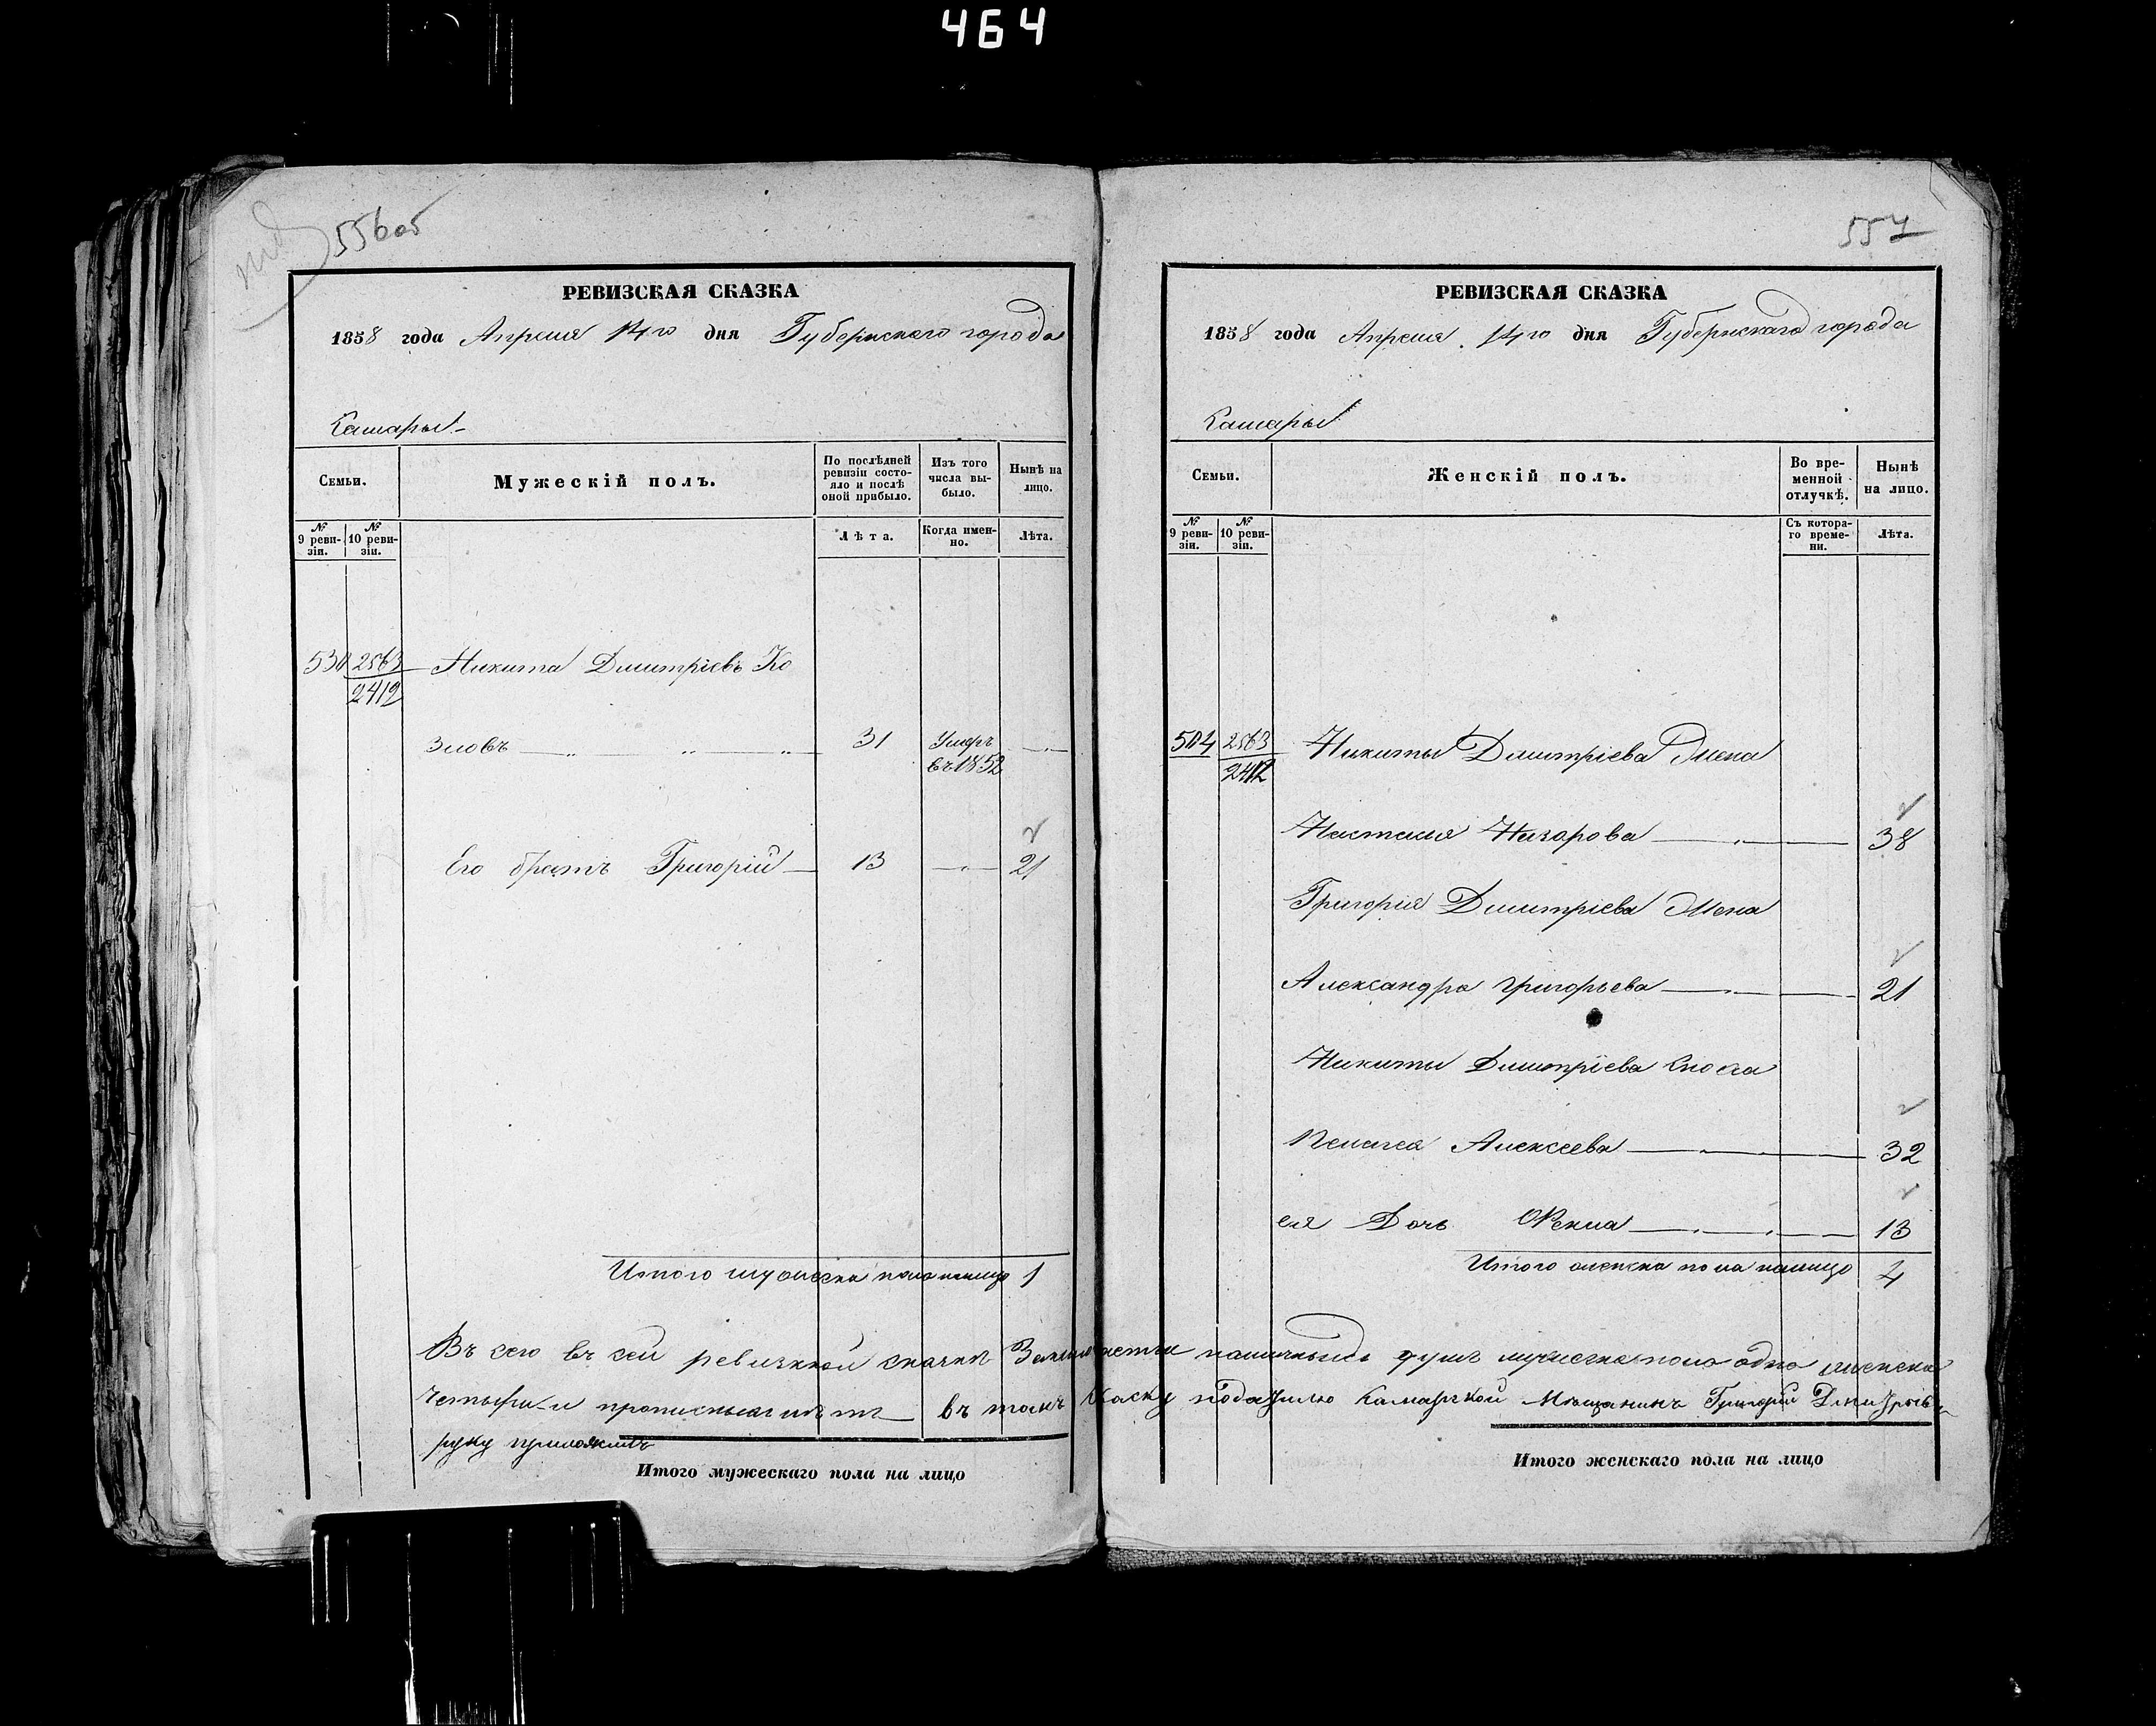 464
556 об
РЕВИЗСКАЯ СКАЗКА
1858 года Апреля 14го дня Губернскаго города
Самары
Семьи.
Мужескій полъ.
По послѣдней ревизіи состояло и послѣ оной прибыло.
Изъ того числа выбыло.
Нынѣ на лицо.
№ 9 ревизіи.
№ 10 ревизіи.
Лѣта.
Когда именно.
Лѣта.
530 2563 Никита Дмитріевъ Ко
2412
зловъ 31 Умеръ
въ 1852
Его братъ Григорій 13 21
Итого мужеска пола налицо 1
557
РЕВИЗСКАЯ СКАЗКА
1858 года Апреля 14го дня Губернскаго города
Самары
Семьи.
Женскій полъ.
Во временной отлучкѣ.
Нынѣ на лицо.
№ 9 ревизіи.
№ 10 ревизіи.
Съ котораго времени.
Лѣта.
504 2563 Никиты Дмитріева Жена
2412
Настасья Назарова 38
Григорія Дмитріева Жена
Александра Григорьева 21
Никиты Дмитріева Сноха
Пелагея Алексеева 32
ея Дочь Фекла 13
Итого женска пола налицо 4
Въ сего въ сей ревизкой скаскѣ наличныхъ душъ мужеска пола одна женска
четыри и прописныхъ нѣтъ въ томъ Скаску подаѣтъ Самарской Мѣщанинъ Григорий Дмитрѣевъ
руку приложилъ
Итого мужескаго пола на лицо
Итого женскаго пола на лицо